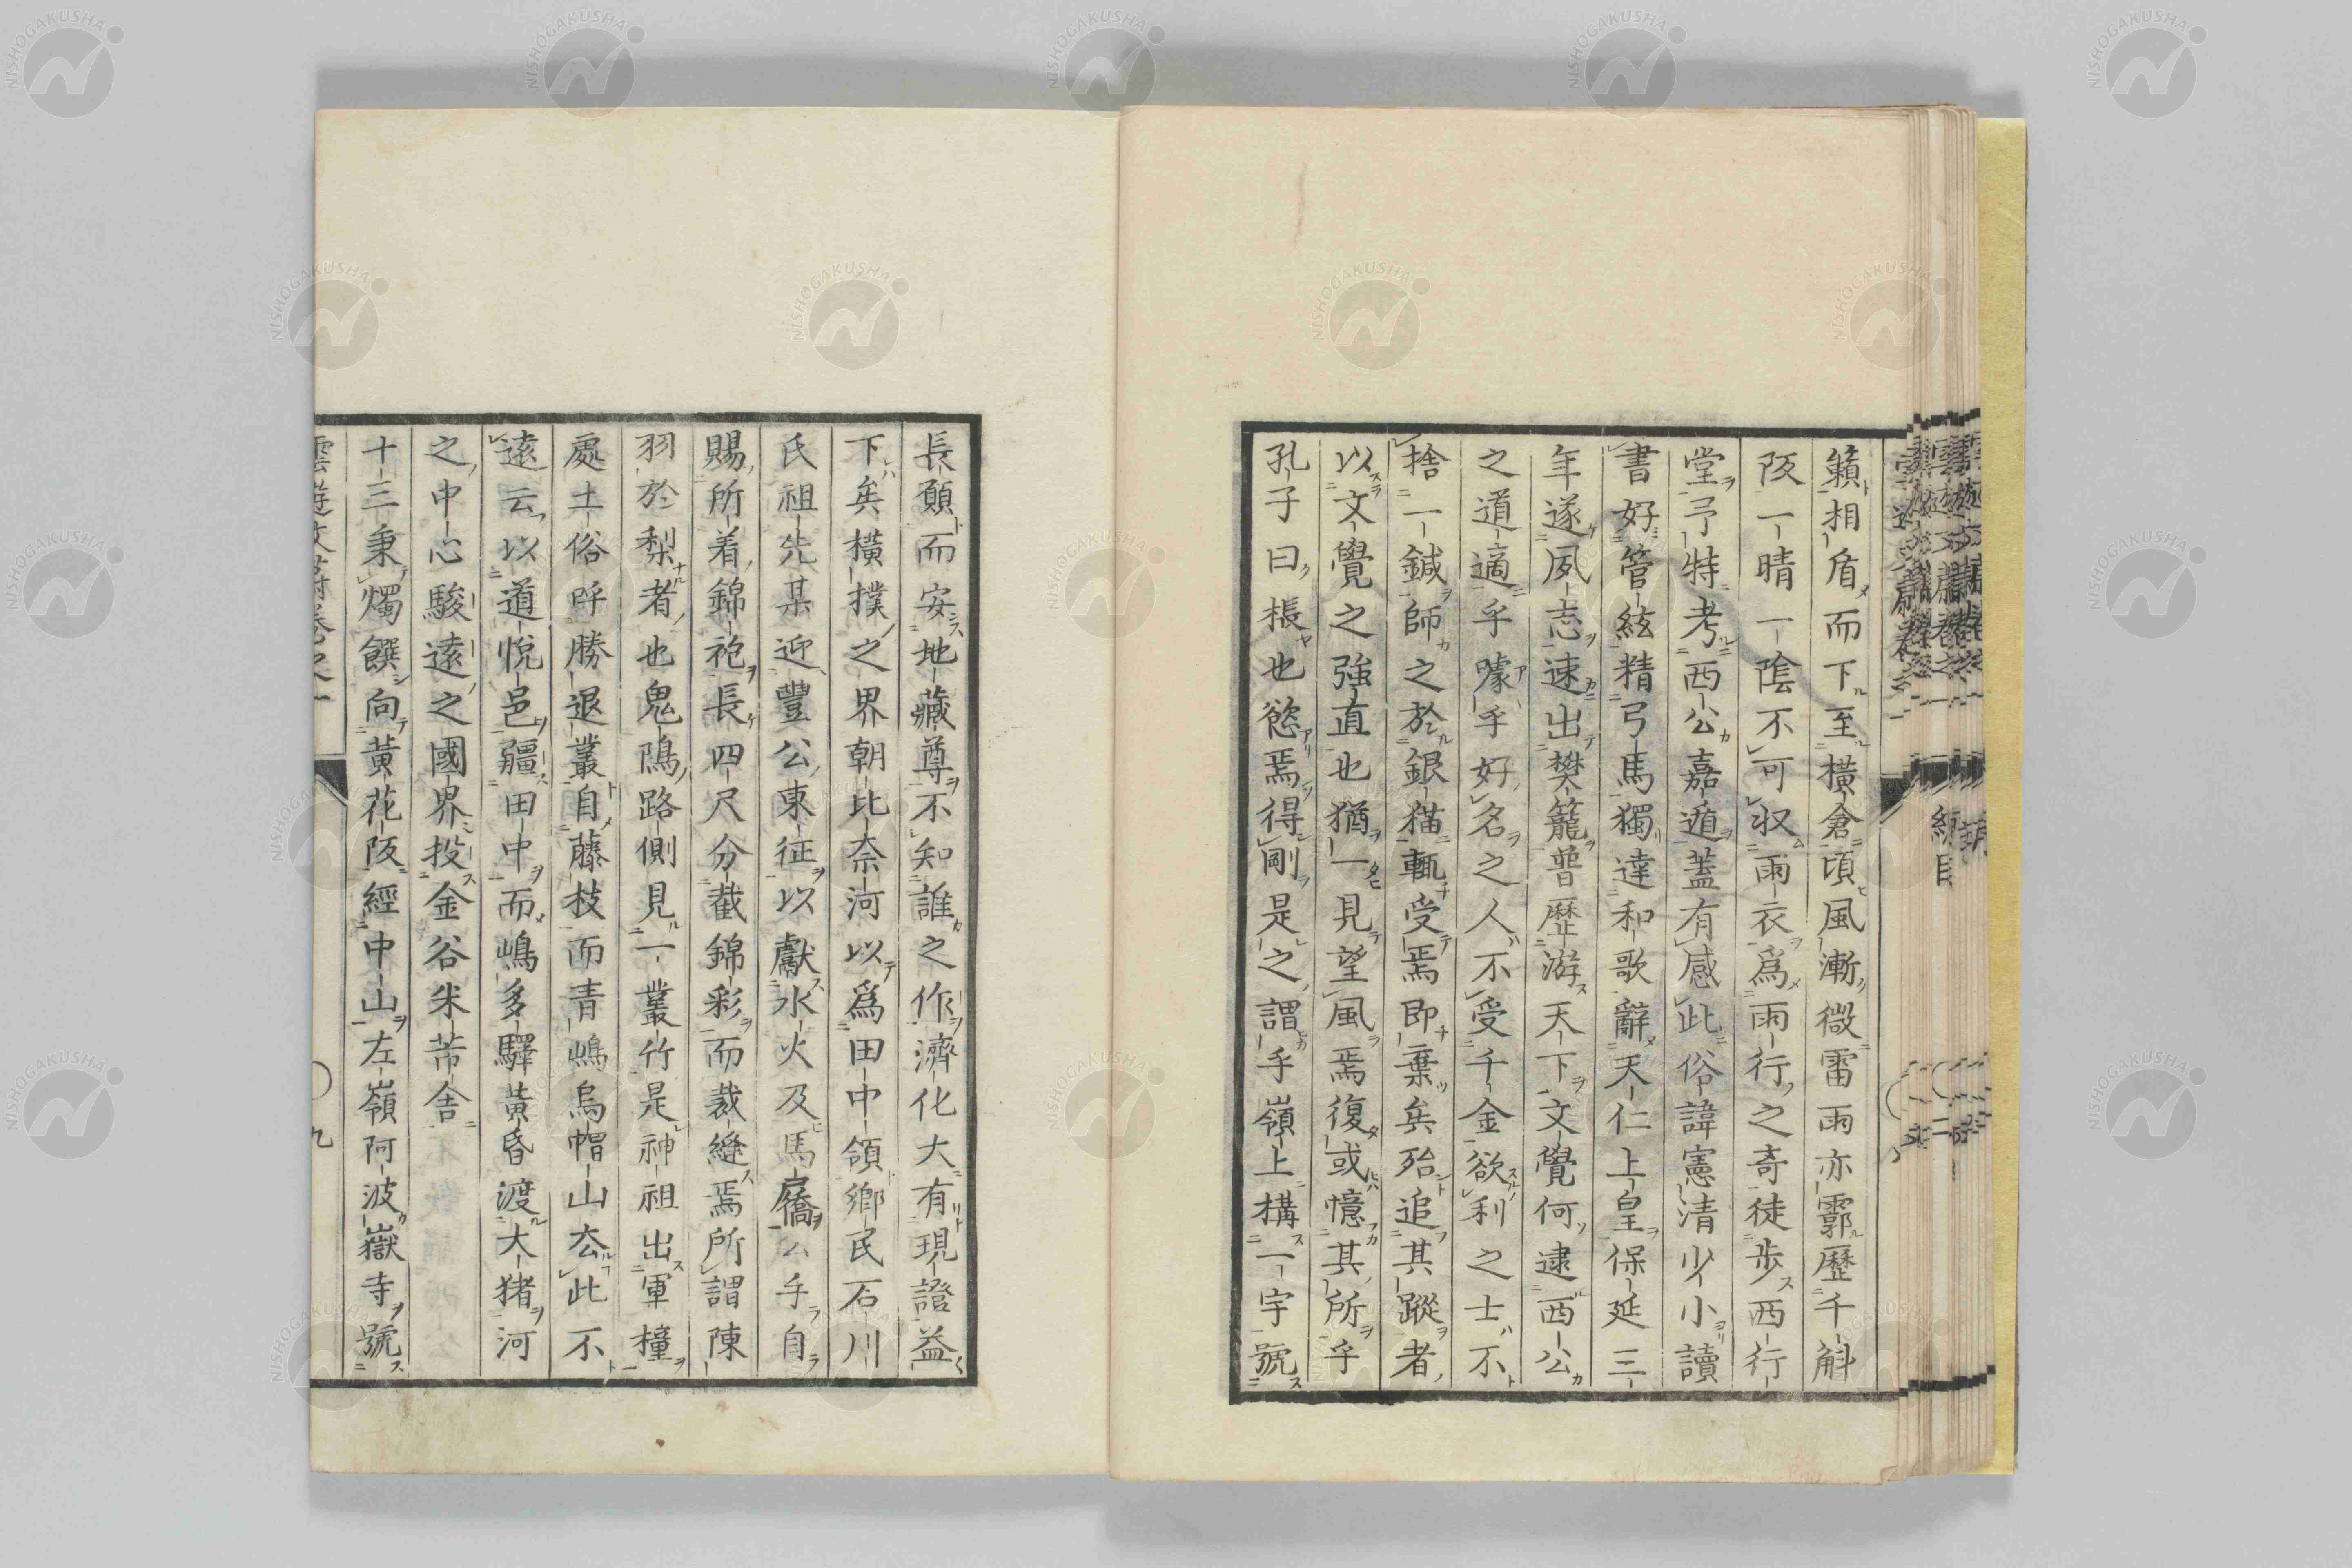 籟相盾而下至橫倉頃風漸微雷雨亦霽歷千斛
阪一晴一陰不可収雨衣爲雨行之奇徒步西行
堂弓特考西公嘉遁蓋有感此俗諱憲清少小讀
書好管絃精弓馬獨達和歌辭天仁上皇保延三
年遂夙志速出樊籠普歷游天下文覺何逮西公
之道適乎噱乎好名之人不受千金欲利之士不
捨一鍼師之於銀猫輒受焉即棄矣殆追其蹤者
以文覺之強直也猶一見望風焉復或憶其所乎
孔子曰棖也慾焉得剛是之謂乎嶺上構一宇號
長願而安地藏尊不知誰之作濟化大有現證益
下矣橫撲之界朝比奈河以爲田中領鄉民石川
氏祖先某迎豐公東征以獻水火及馬屫公手自
賜所着錦袍長四尺分截錦彩而裁縫焉所謂陳
羽於梨者也鬼隝路側見一叢竹是神祖出軍橦
處土俗呼勝退叢自藤枝而青嶋烏帽山厺此不
遠云以道悅邑疆田中而嶋多驛黃昏渡大猪河
之中心駿遠之國界投金谷朱芾舎
十三秉燭饌向黃花阪經中山左嶺阿波嶽寺號
雲遊文蔚卷之一
九
NISHOGAKUSHA